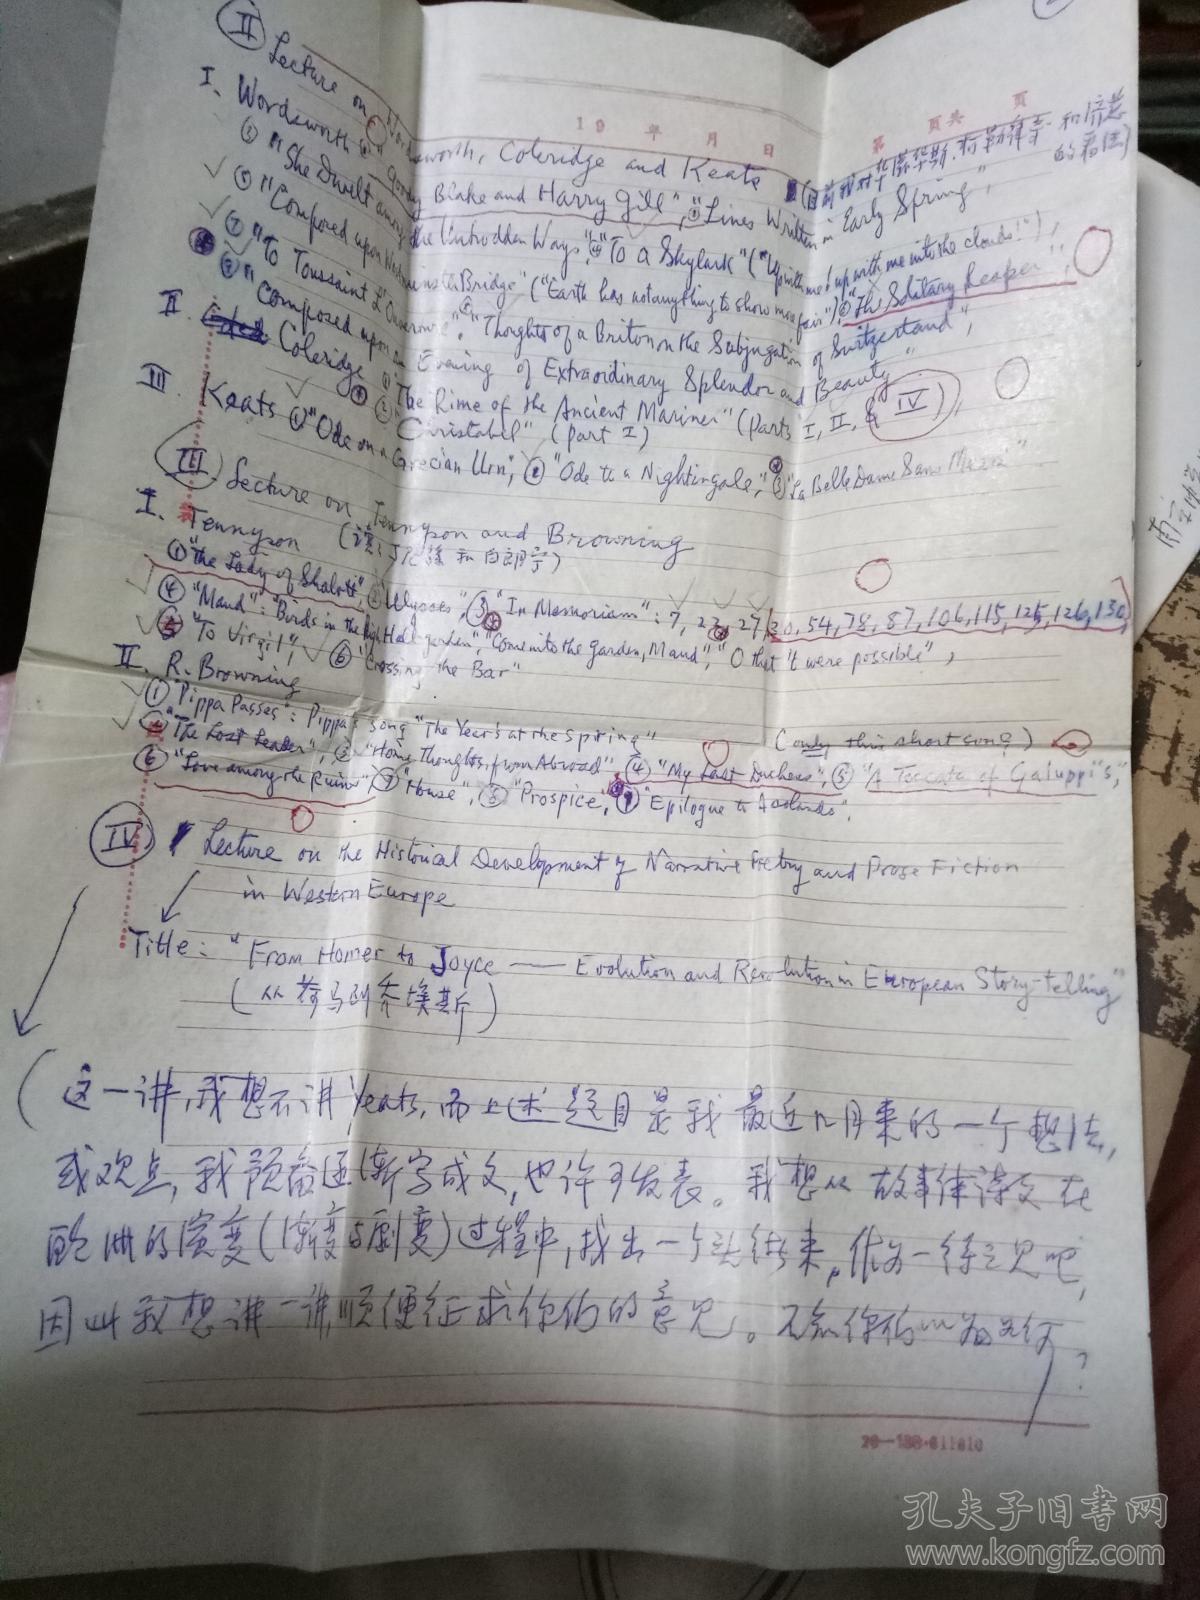 II Lecture on Wordsworth, Coleridge and Keats (目前我对华滋华斯、柯勒律奇和济慈的看法)
19 年 月 日
第 页共 页
I. Wordsworth "Goody Blake and Harry Gill", "Lines Written in Early Spring",
③ "She Dwelt among the Untrodden Ways", ④ "To a Skylark" ("Up with me! up with me into the clouds!"),
⑤ "Composed upon Westminster Bridge" ("Earth has not anything to show more fair"), ⑥ "The Solitary Reaper",
⑦ "To Toussaint L'Ouverture", "Thoughts of a Briton on the Subjugation of Switzerland",
⑨ "Composed upon an Evening of Extraordinary Splendor and Beauty"
II. Coleridge ① "The Rime of the Ancient Mariner" (Parts I, II, & IV),
② "Christabel" (Part I)
III. Keats ① "Ode on a Grecian Urn", ② "Ode to a Nightingale", ③ "La Belle Dame Sans Merci"
III. Lecture on Tennyson and Browning
I. Tennyson (谈丁尼孙和白朗宁)
① "The Lady of Shalott", ② "Ulysses", ③ "In Memoriam": 7, 23, 27, 30, 54, 78, 87, 106, 115, 125, 126, 130,
④ "Maud": "Birds in the high Hall-garden", "Come into the garden, Maud", "O that 't were possible",
⑤ "To Virgil", ⑥ "Crossing the Bar"
II. R. Browning
① "Pippa Passes": Pippa's song "The Year's at the spring" (only this short song?)
② "The Lost Leader", ③ "Home Thoughts, from Abroad", ④ "My Last Duchess", ⑤ "A Toccata of Galuppi's",
⑥ "Love among the Ruins", ⑦ "House", ⑧ "Prospice, ⑨ "Epilogue to Asolando".
IV Lecture on the Historical Development of Narrative Poetry and Prose Fiction
in Western Europe
Title: "From Homer to Joyce —— Evolution and Revolution in European Story-telling"
(从荷马到乔埃斯)
(这一讲,我想不讲Yeats,而上述题目是我最近几月来的一个想法,
或观点,我预备逐渐写成文,也许可发表。我想从故事体诗文在
欧洲的演变(渐变与剧变)过程中,找出一个头绪来,作为一得之见吧,
因此我想讲一讲,顺便征求你们的意见。不知你们以为如何?
20—188·611810
孔夫子旧书网
www.kongfz.com